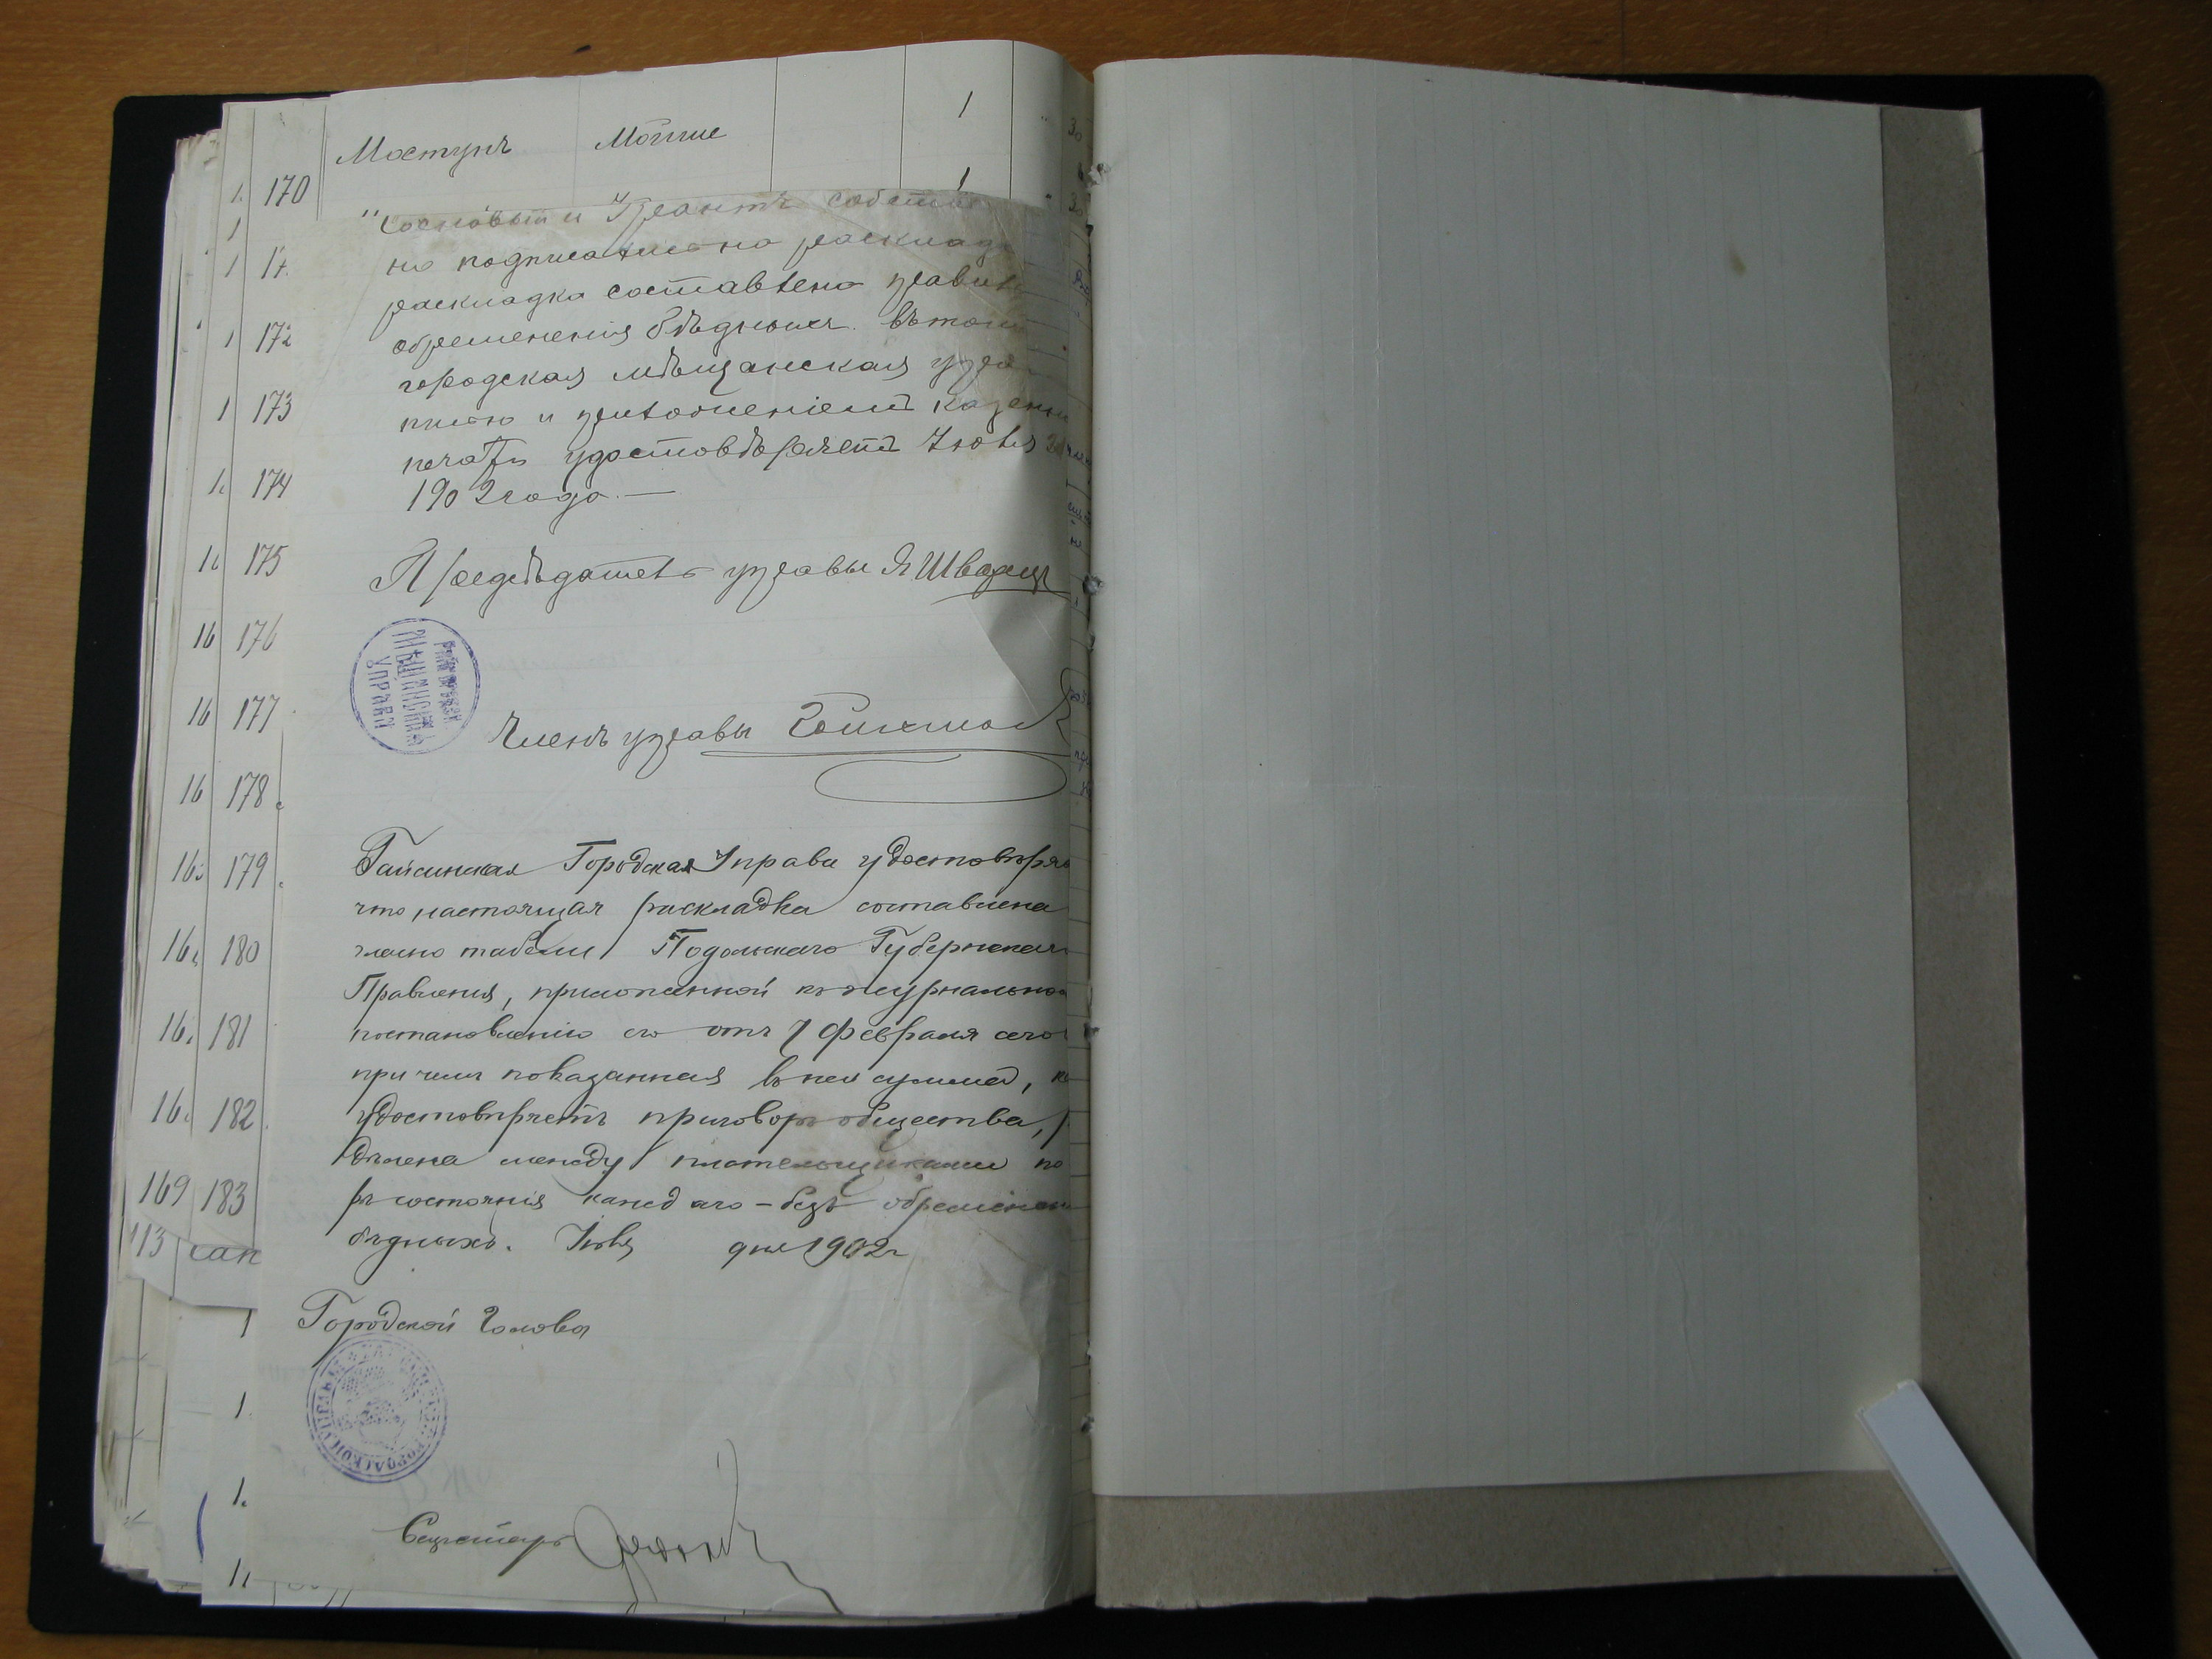 170 Мостунъ Мошие 1
1
но подписано на расклад
раскладка составлена правил
обременения бѣдныхъ. въ том
городская мѣщанская упра
писью и приложеніемъ казенн
печати удостовѣряетъ Іюля
1902 года. —
Предсѣдатель управы Я Шварцъ
МѢЩАНСКАЯ
УПРАВА
Членъ управы
Гайсинская Городская Управа удостовѣря
что настоящая раскладка составлена
гласно табели Подольскаго Губернскаго
Правленія, приложенной къ журнальном
постановленію его отъ 7 февраля сего
при чемъ показанная въ ней суммы,
удостовѣряетъ приговоръ общества,
дѣлена между плательщиками по
рѣ состоянія каждаго – безъ обременен
бѣдныхъ. Іюля дня 1902 г
Городской Голова
Секретарь
17
172
173
174
175
176
177
178
179
180
181
182
169 183
113